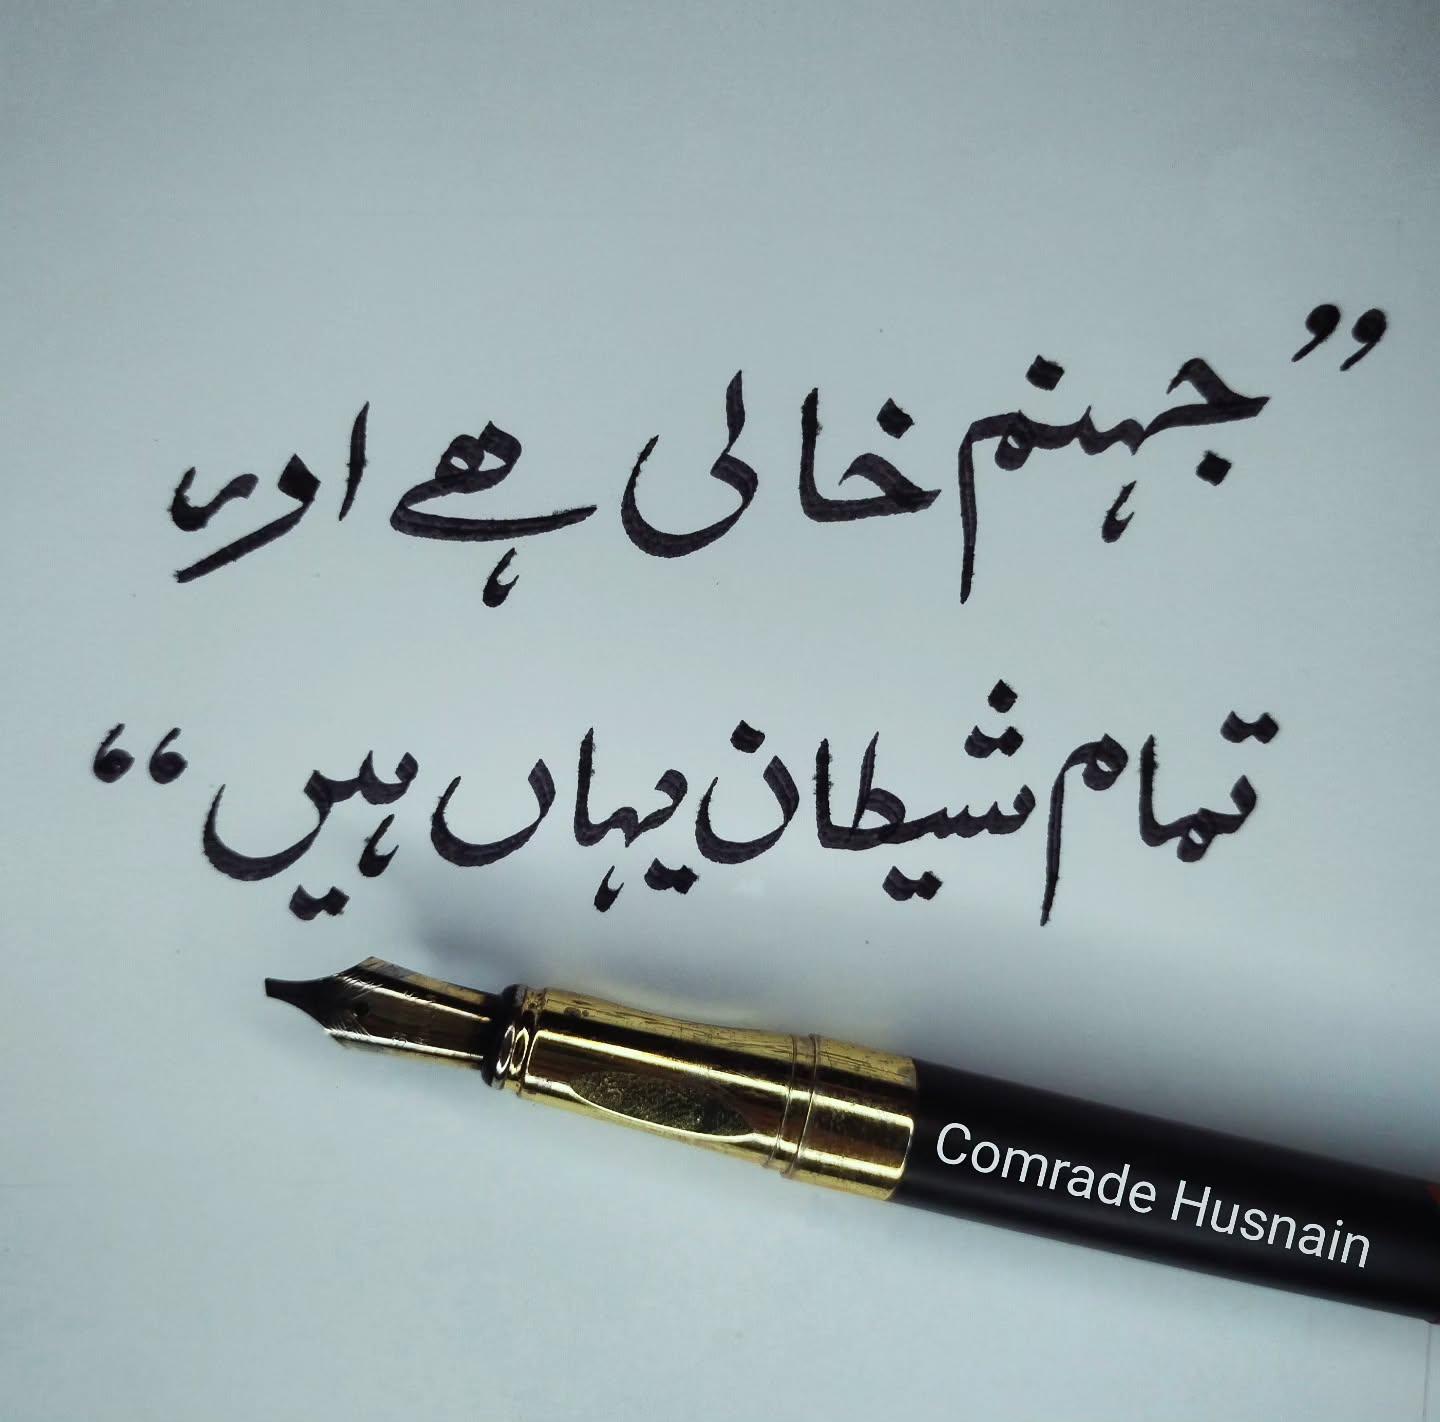 ”جہنم خالی ہے اور
تمام شیطان یہاں ہیں“
Comrade Husnain